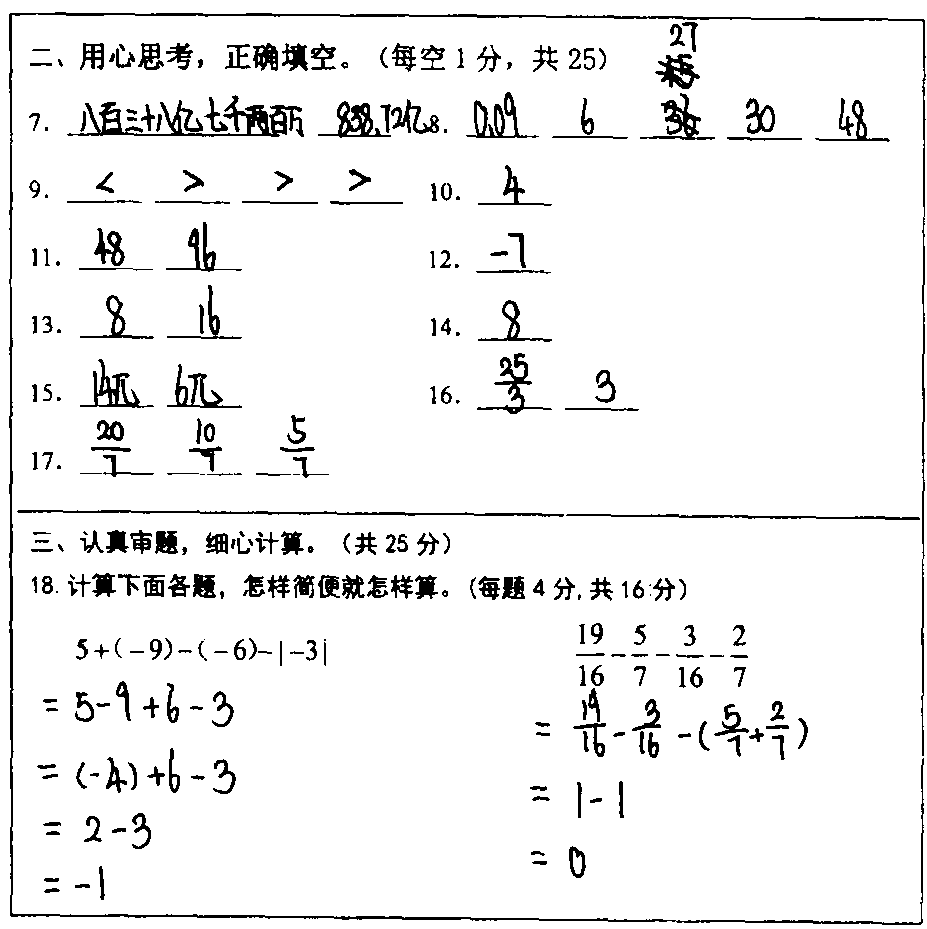 二、用心思考，正确填空。（每空 1 分，共 25） 27
7. 八百三十八亿七千两百万 838.72亿 8. 0.09 6 30 48
9. < > > > 10. 4
11. 48 96 12. -7
13. 8 16 14. 8
15. 14π 6π 16. 25/3 3
17. 20/7 10/7 5/7
三、认真审题，细心计算。（共 25 分）
18. 计算下面各题，怎样简便就怎样算。(每题 4 分, 共 16 分)
5+(-9)-(-6)-|-3| 19/16 - 5/7 - 3/16 - 2/7
= 5-9+6-3 = 19/16 - 3/16 - (5/7 + 2/7)
= (-4)+6-3 = 1-1
= 2-3 = 0
= -1